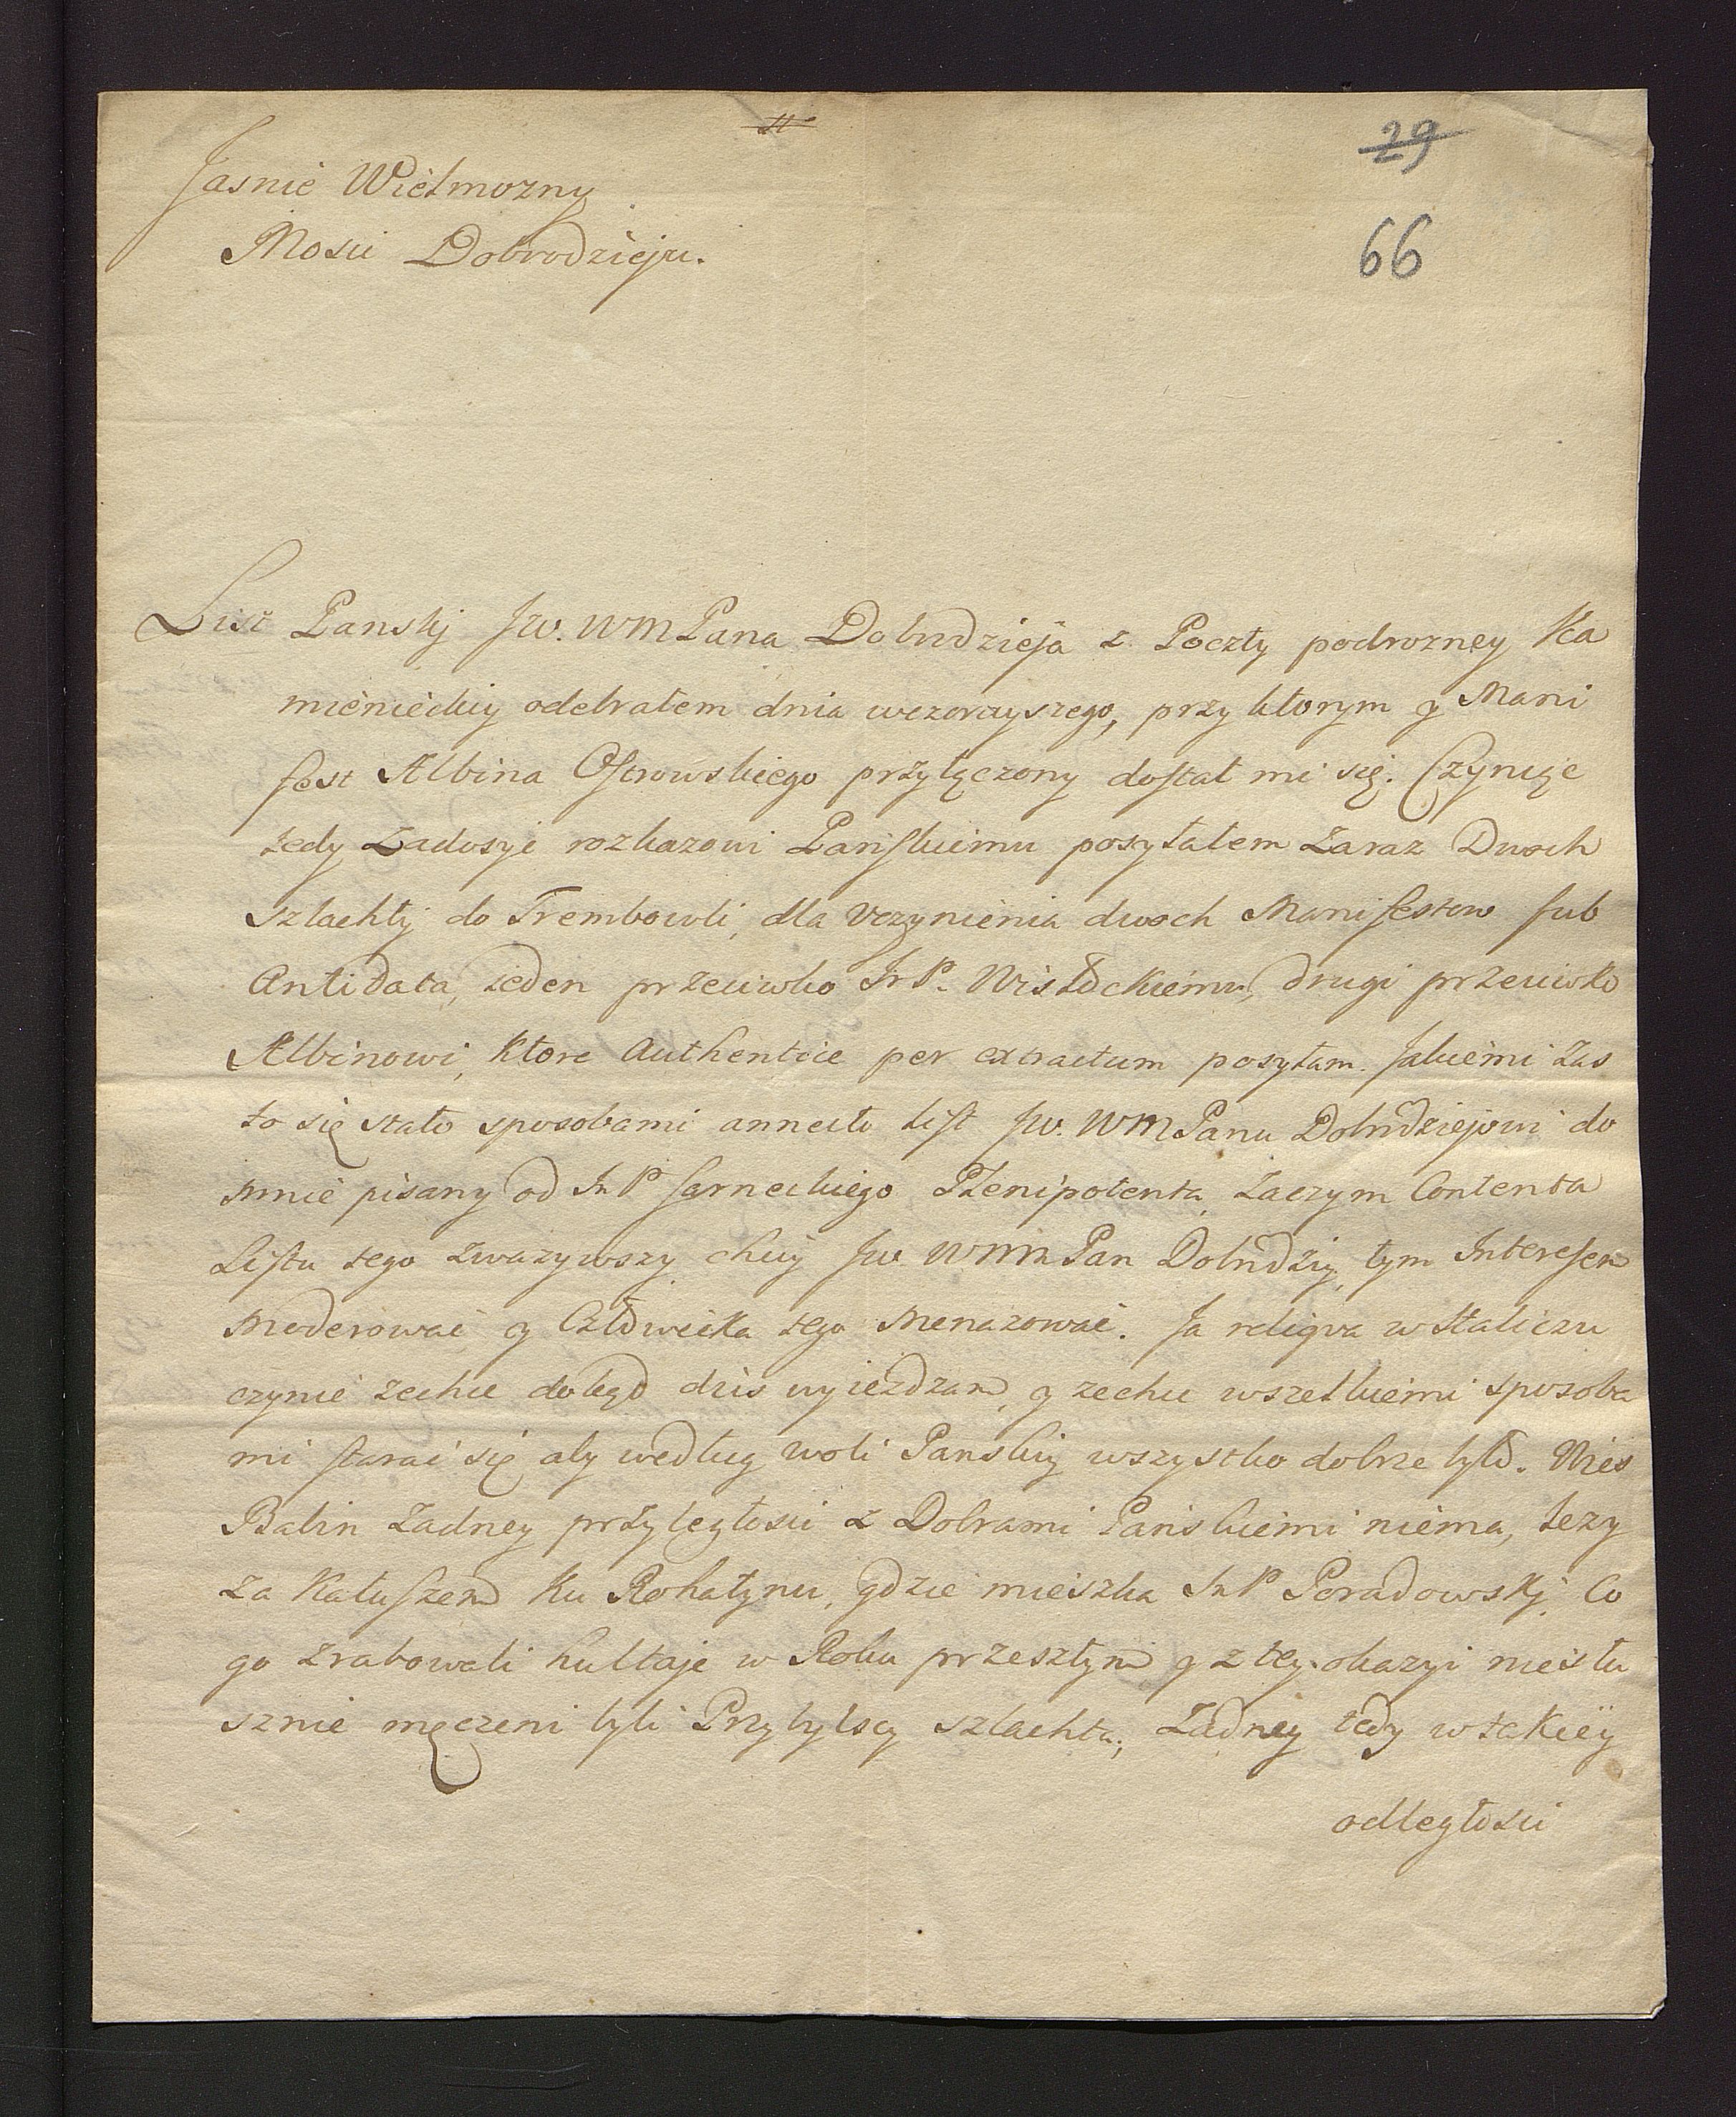 29
66
Jasnie Wielmozny
Mosci Dobrodzieju.
List Panskj Jw. WMPana Dobrdzieja z Poczty podrozney Ka
mienieckiy odebrałem dnia wczorayszego, przy ktorym y Mani
fest Albina Ostrowskiego przyłączony dostał mi się. Czyniąc
tedy Zadosyć rozkazowi Pańskiemu posyłałem Zaraz Dwoch
Szlachty do Trembowli, dla Vczynienia dwoch Manifestow sub
Antidata, ieden przeciwko Jr P. Wisłockiemu, drugi przeciwko
Albinowi, Ktore Authentice per extractum posyłam. Jakiemi Zas
to się stało sposobami annecto list Jw. WMPanu Dobrdziejowi do
mnie pisany od Jm P Sarneckiego Plenipotenta, Zaczym Contenta
Listu tego Zwazywszy chciy Jw WMMPan Dobrdziy tym Interesem
moderować y Człowieka tego Menazować. Ja reliqva w Haliczu
czynić zechce dokąd dzis wyiezdzam, y zechce wszelkiemi sposoba
mi starać się aby według woli Panskiy wszystko dobrze było. Wies
Babin Zadney przyległosci z Dobrami Pańskiemi niema, lezy
Za Kałuszem Ku Rohatynu, gdzie mieszka Jm P Poradowskj, Co
go Zrabowali hultaje w Roku przeszłym y z tey okazyi niesłu
sznie męczeni byli Przybylscy szlachta; Zadney tedy w takiey
odległosci